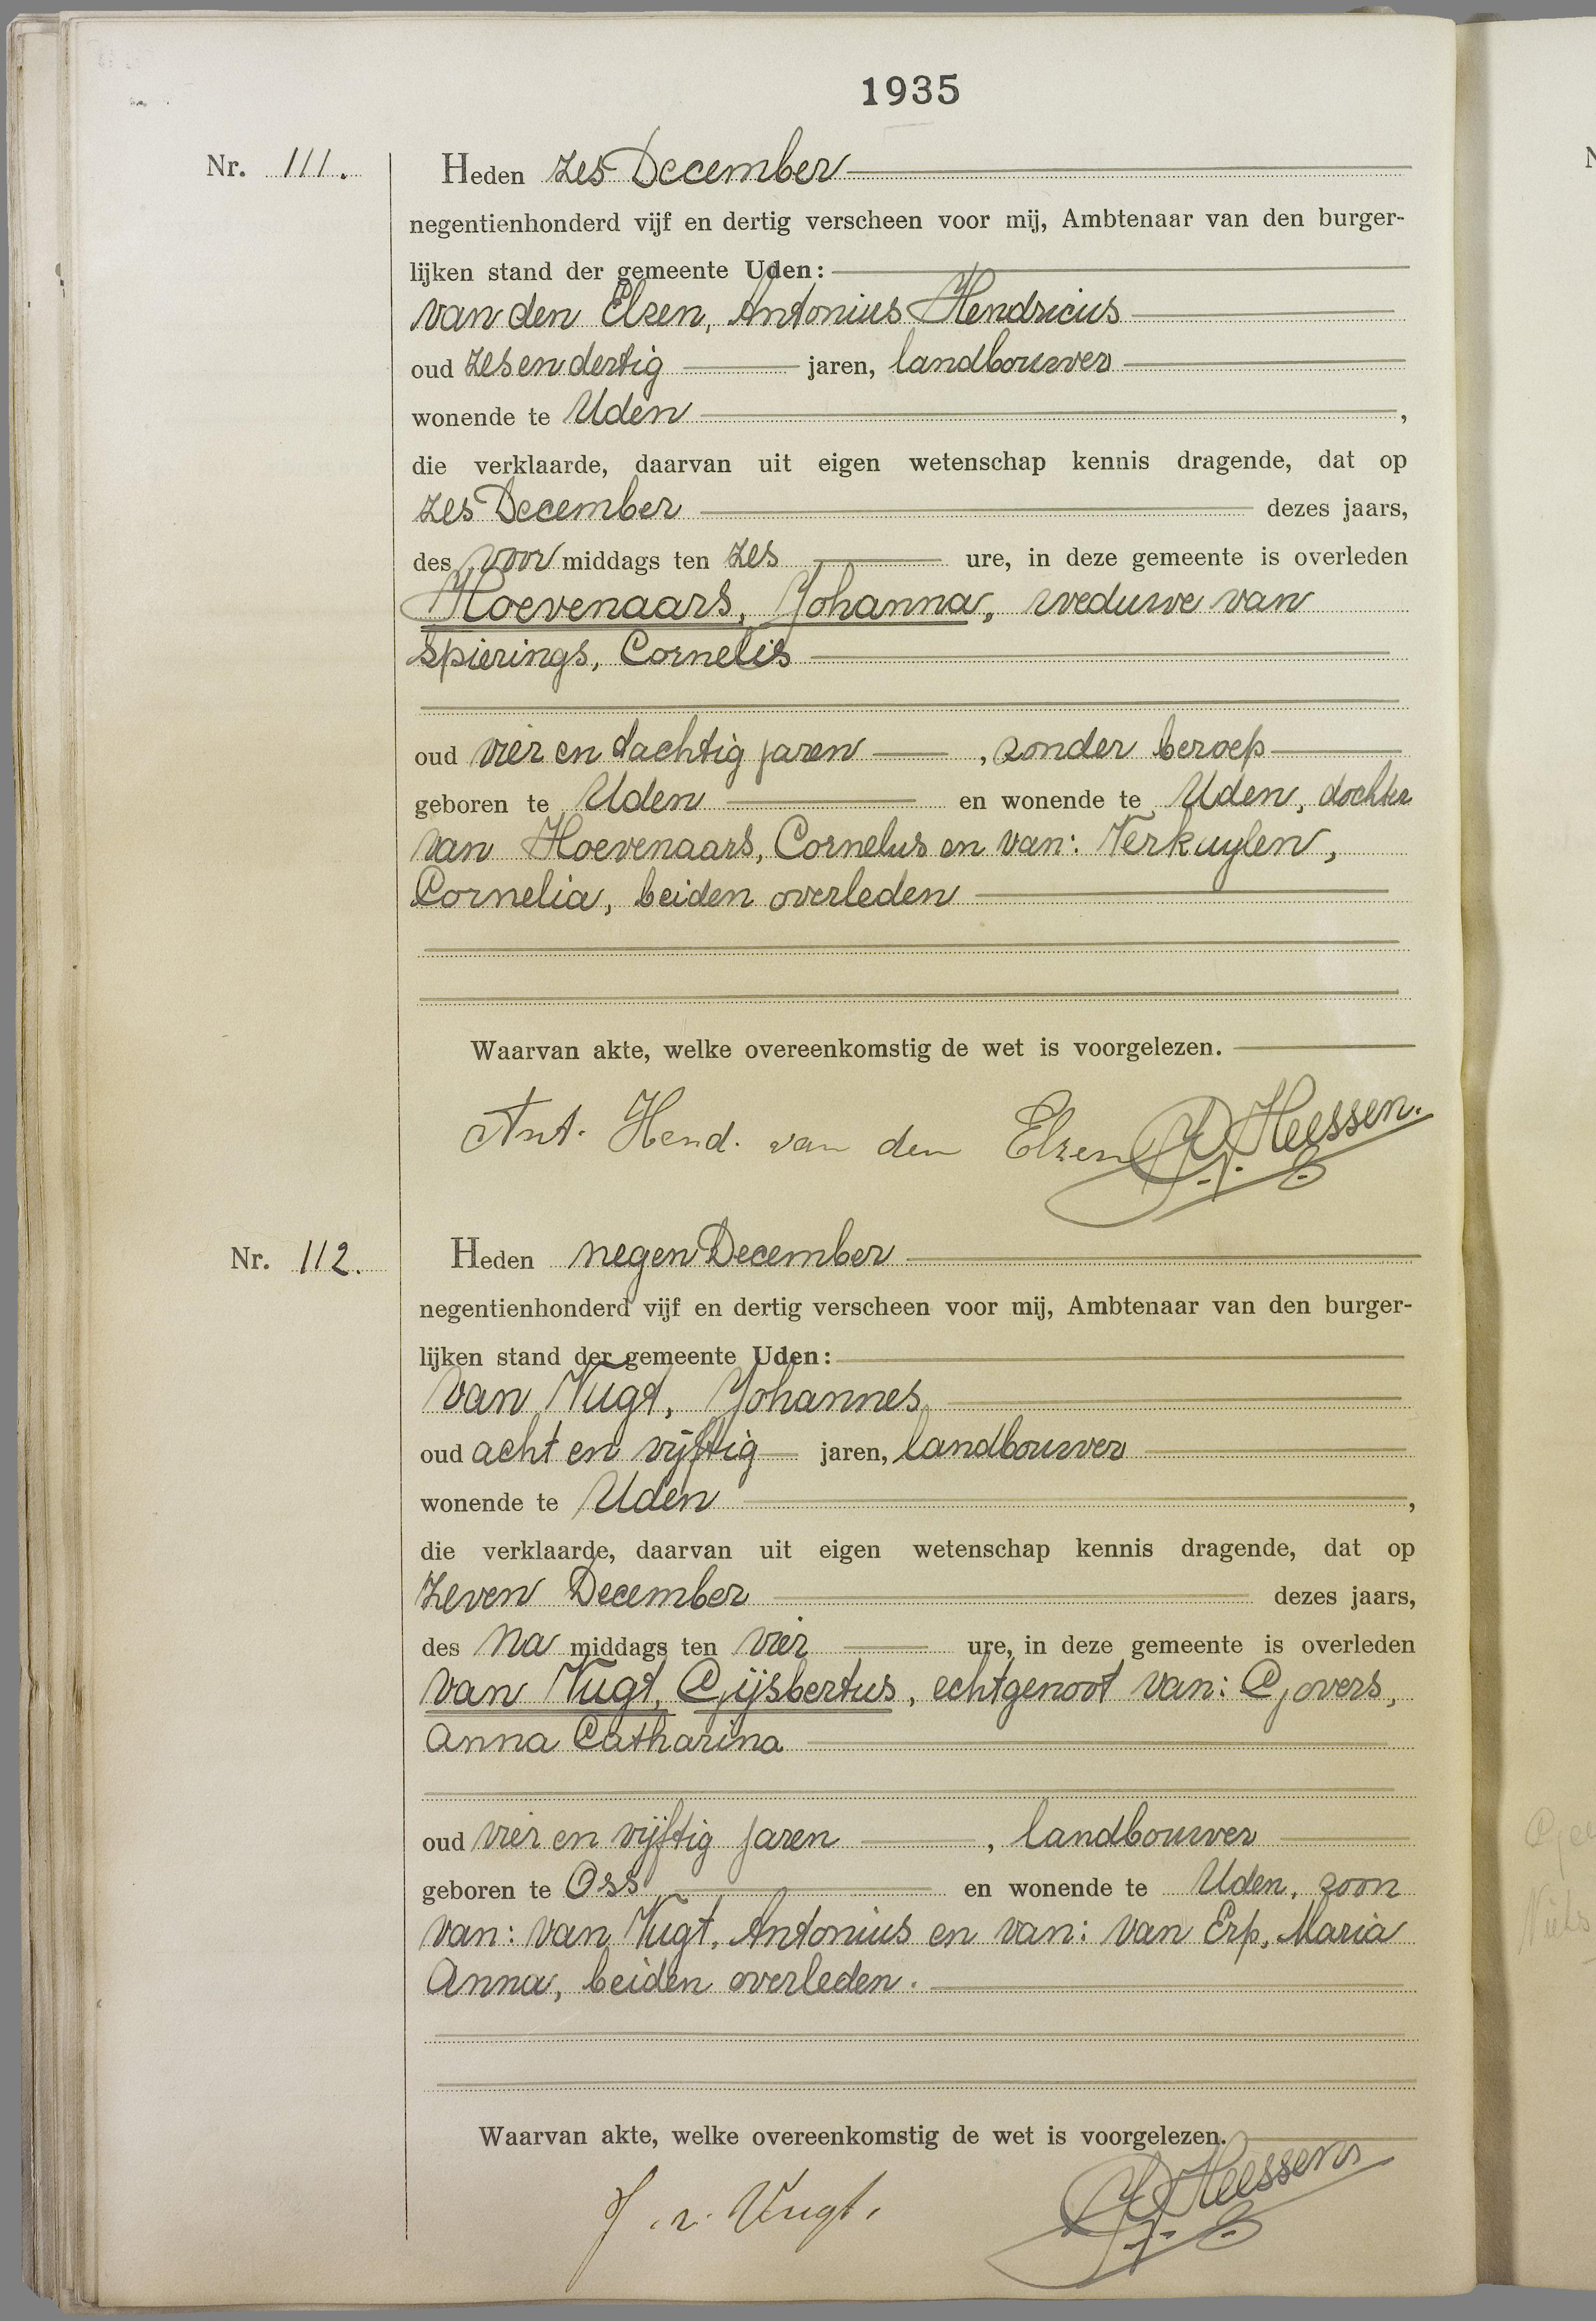 1935
Nr. 111.
Heden zes December
negentienhonderd vijf en dertig verscheen voor mij, Ambtenaar van den burger-
lijken stand der gemeente Uden:
van den Elzen, Antonius Hendricus
oud zesendertig jaren, landbouwer
wonende te Uden,
die verklaarde, daarvan uit eigen wetenschap kennis dragende, dat op
zes December dezes jaars,
des voor middags ten zes ure, in deze gemeente is overleden
Hoevenaars, Johanna, weduwe van
Spierings, Cornelis
oud vier en tachtig jaren, zonder beroep
geboren te Uden en wonende te Uden, dochter
van Hoevenaars, Cornelus en van: Verkuylen,
Cornelia, beiden overleden
Waarvan akte, welke overeenkomstig de wet is voorgelezen.
Ant. Hend. van den Elzen Heessen.
Nr. 112.
Heden negen December
negentienhonderd vijf en dertig verscheen voor mij, Ambtenaar van den burger-
lijken stand der gemeente Uden:
van Vugt, Johannes
oud acht en vijftig jaren, landbouwer
wonende te Uden,
die verklaarde, daarvan uit eigen wetenschap kennis dragende, dat op
zeven December dezes jaars,
des na middags ten vier ure, in deze gemeente is overleden
van Vugt, Gijsbertus, echtgenoot van: Govers,
Anna Catharina
oud vier en vijftig jaren, landbouwer
geboren te Oss en wonende te Uden, zoon
van: van Vugt, Antonius en van: van Erp, Maria
Anna, beiden overleden.
Waarvan akte, welke overeenkomstig de wet is voorgelezen.
J. v. Vugt. Heessen